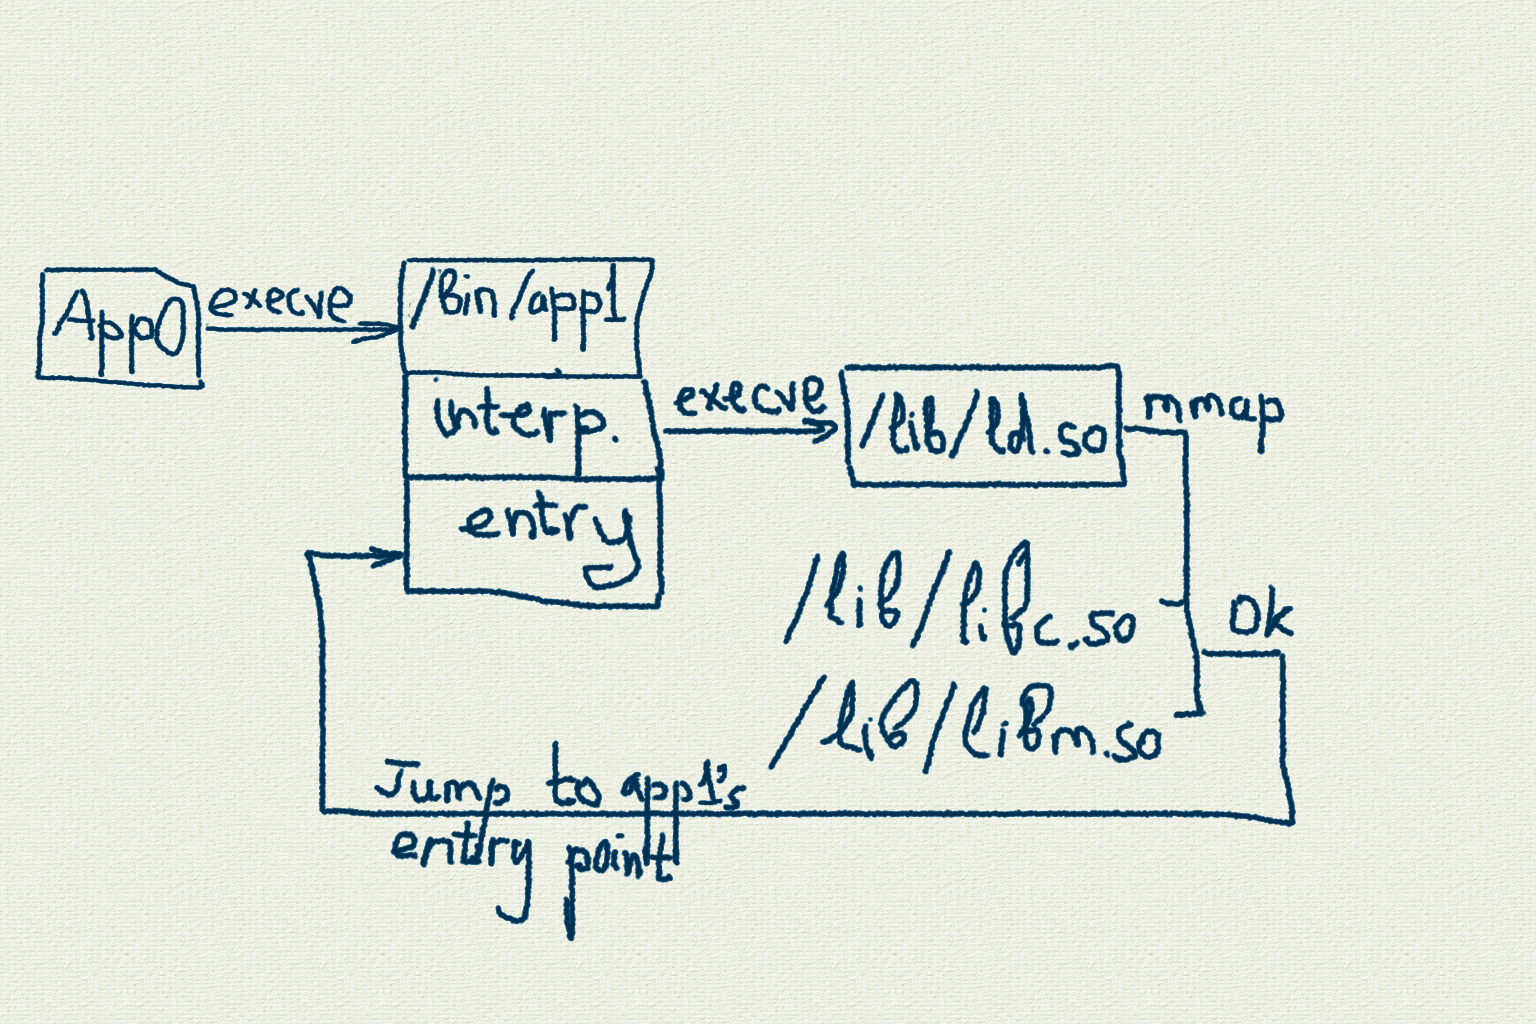 App0
execve
/bin/app1
interp.
entry
execve
/lib/ld.so
mmap
/lib/libc.so
/lib/libm.so
Ok
Jump to app1's
entry point